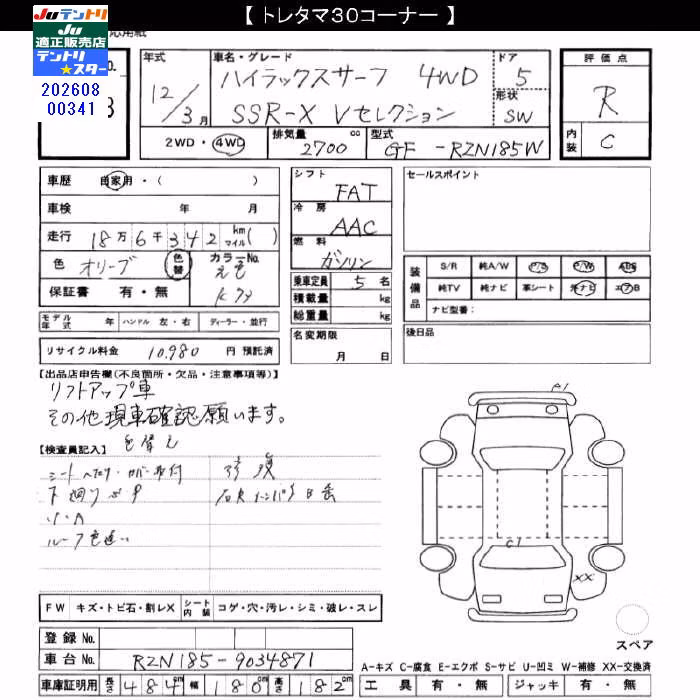 【 トレタマ30コーナー 】
Juテントリ
Ju
適正販売店
テントリ
★スター
応用紙
No.
202608
00341
年式 車名・グレード ドア 評価点
ハイラックスサーフ 4WD 5
12/3月 形状 R
SSR-X Vセレクション SW
2WD・4WD 排気量 2700 cc 型式 GF -RZN185W 内装 C
車歴 自家用・( )
車検 年 月
走行 18万6千342 km マイル( )
色 オリーブ 色替 カラーNo. 元色
保証書 有・無
モデル年式 年 ハンドル 左・右 ディーラー・並行
リサイクル料金 10,980 円 預託済
シフト FAT
冷房 AAC
燃料 ガソリン
乗車定員 5 名
積載量 kg
総重量 kg
名変期限
月 日
セールスポイント
装備品 S/R 純A/W P/S P/W ABS
純TV 純ナビ 革シート エアB
ナビ型番:
後日品
【出品店申告欄(不良箇所・欠品・注意事項等)】
リフトアップ車
その他現車確認願います。
【検査員記入】 色替え
下廻り
ルーフ色違い
修復
A1
C1
XX
FW キズ・トビ石・割レX シート内装 コゲ・穴・汚レ・シミ・破レ・スレ
登録 No.
車台 No. RZN185-9034871
車庫証明用 長さ 484cm 幅 180cm 高さ 182cm
スペア
A-キズ C-腐食 E-エクボ S-サビ U-凹ミ W-補修 XX-交換済
工具 有・無 ジャッキ 有・無